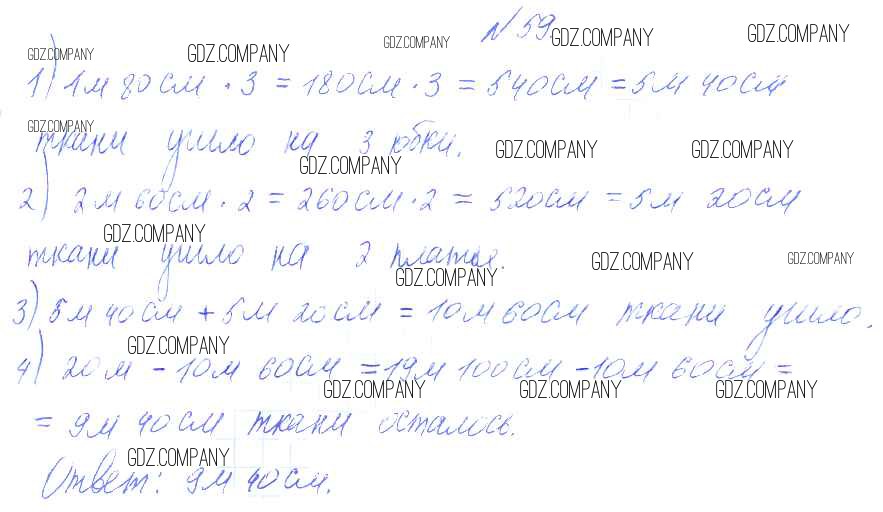 № 59
GDZ.COMPANY GDZ.COMPANY GDZ.COMPANY GDZ.COMPANY GDZ.COMPANY
1) 1м 80см · 3 = 180см · 3 = 540см = 5м 40см
GDZ.COMPANY
ткани ушло на 3 юбки.
GDZ.COMPANY GDZ.COMPANY GDZ.COMPANY
2) 2м 60см · 2 = 260см · 2 = 520см = 5м 20см
GDZ.COMPANY
ткани ушло на 2 платья.
GDZ.COMPANY GDZ.COMPANY GDZ.COMPANY
3) 5м 40см + 5м 20см = 10м 60см ткани ушло.
GDZ.COMPANY
4) 20м - 10м 60см = 19м 100см - 10м 60см =
GDZ.COMPANY GDZ.COMPANY GDZ.COMPANY
= 9м 40см ткани осталось.
GDZ.COMPANY
Ответ: 9м 40см.